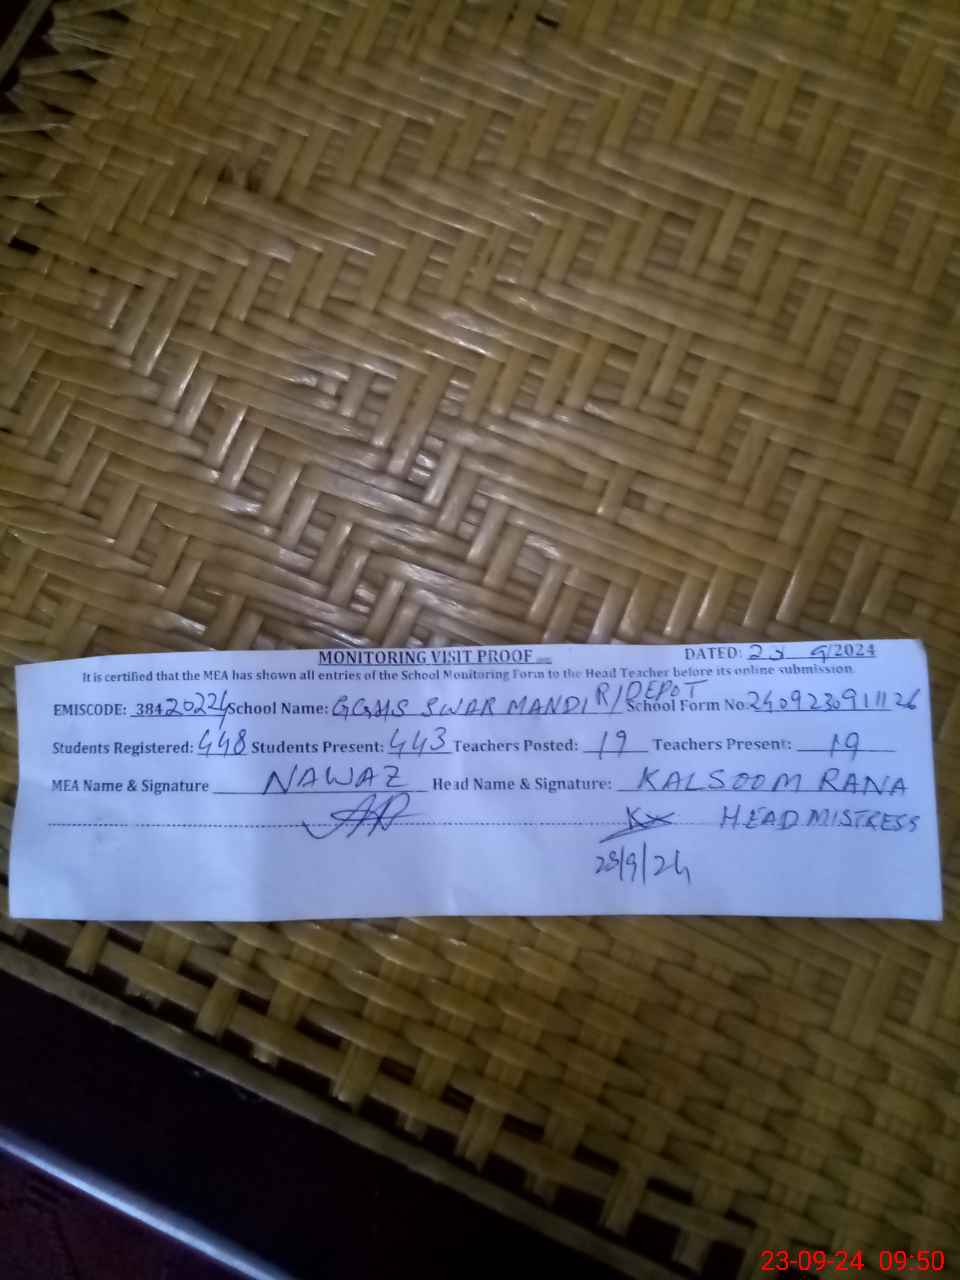 MONITORING VISIT PROOF
DATED: 23 9/2024
It is certified that the MEA has shown all entries of the School Monitoring Form to the Head Teacher before its online submission.
EMISCODE: 38420224 School Name: GGHS SWAR MANDI R/DEPOT School Form No. 240923091126
Students Registered: 448 Students Present: 443 Teachers Posted: 19 Teachers Present: 19
MEA Name & Signature NAWAZ Head Name & Signature: KALSOOM RANA
HEADMISTRESS
23/9/24
23-09-24 09:50